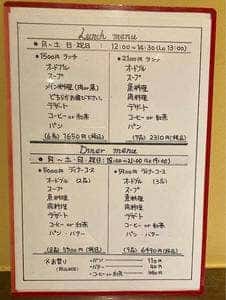 Lunch menu
●月~土 日・祝日: 12:00~14:30 (Lo 13:00)
●1500円 ランチ
オードブル
スープ
メイン料理(肉or魚)
どちらかお選び下さい。
デザート
コーヒー or 紅茶
パン
(6品) 1650円(税込)
●2100円 ランチ
オードブル
スープ
魚料理
肉料理
デザート
コーヒー or 紅茶
パン
(7品) 2310円(税込)
Dinner menu
●月~土・日・祝日:
●5000円 ディナーコース
オードブル (2品)
スープ
魚料理
肉料理
デザート
コーヒー or 紅茶
パン・バター
ディナーコース
オードブル (3品)
スープ
魚料理
肉料理
デザート
コーヒー or 紅茶
パン・バター
(税込)
・パン
・バター
・コーヒー or 紅茶